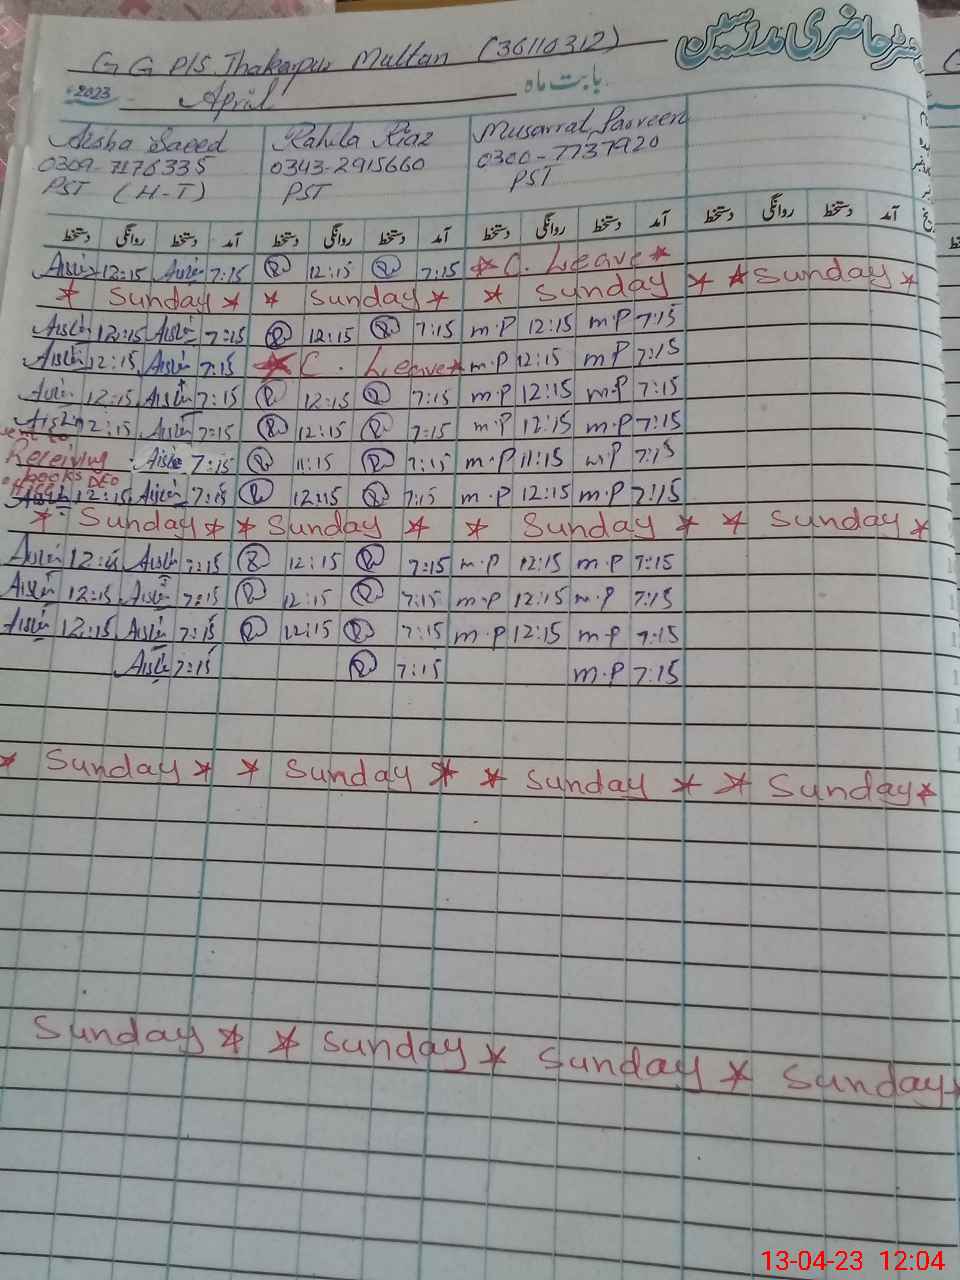 رجسٹر حاضری مدرسین
G G P/S Thakarpur Multan (36110312)
2023 April بابت ماہ
Aisha Saeed Rahila Riaz Musarrat Parveen
0309-7176335 0343-2915660 0300-7737920
PST (H-T) PST PST
دستخط روانگی دستخط آمد دستخط روانگی دستخط آمد دستخط روانگی دستخط آمد دستخط روانگی دستخط آمد
Aisha 12:15 Aisha 7:15 R 12:15 R 7:15 * C. Leave *
* Sunday * * Sunday * * Sunday * * Sunday *
Aisha 12:15 Aisha 7:15 R 12:15 R 7:15 m.P 12:15 m.P 7:15
Aisha 12:15 Aisha 7:15 * C. Leave * m.P 12:15 m.P 7:15
Aisha 12:15 Aisha 7:15 R 12:15 R 7:15 m.P 12:15 m.P 7:15
Aisha 12:15 Aisha 7:15 R 12:15 R 7:15 m.P 12:15 m.P 7:15
Receiving Aisha 7:15 R 11:15 R 7:15 m.P 11:15 m.P 7:15
books DEO
Aisha 12:15 Aisha 7:15 R 12:15 R 7:15 m.P 12:15 m.P 7:15
* Sunday * * Sunday * * Sunday * * Sunday *
Aisha 12:15 Aisha 7:15 R 12:15 R 7:15 m.P 12:15 m.P 7:15
Aisha 12:15 Aisha 7:15 R 12:15 R 7:15 m.P 12:15 m.P 7:15
Aisha 12:15 Aisha 7:15 R 12:15 R 7:15 m.P 12:15 m.P 7:15
Aisha 7:15 R 7:15 m.P 7:15
* Sunday * * Sunday * * Sunday * * Sunday *
Sunday * * Sunday * Sunday * Sunday *
13-04-23 12:04